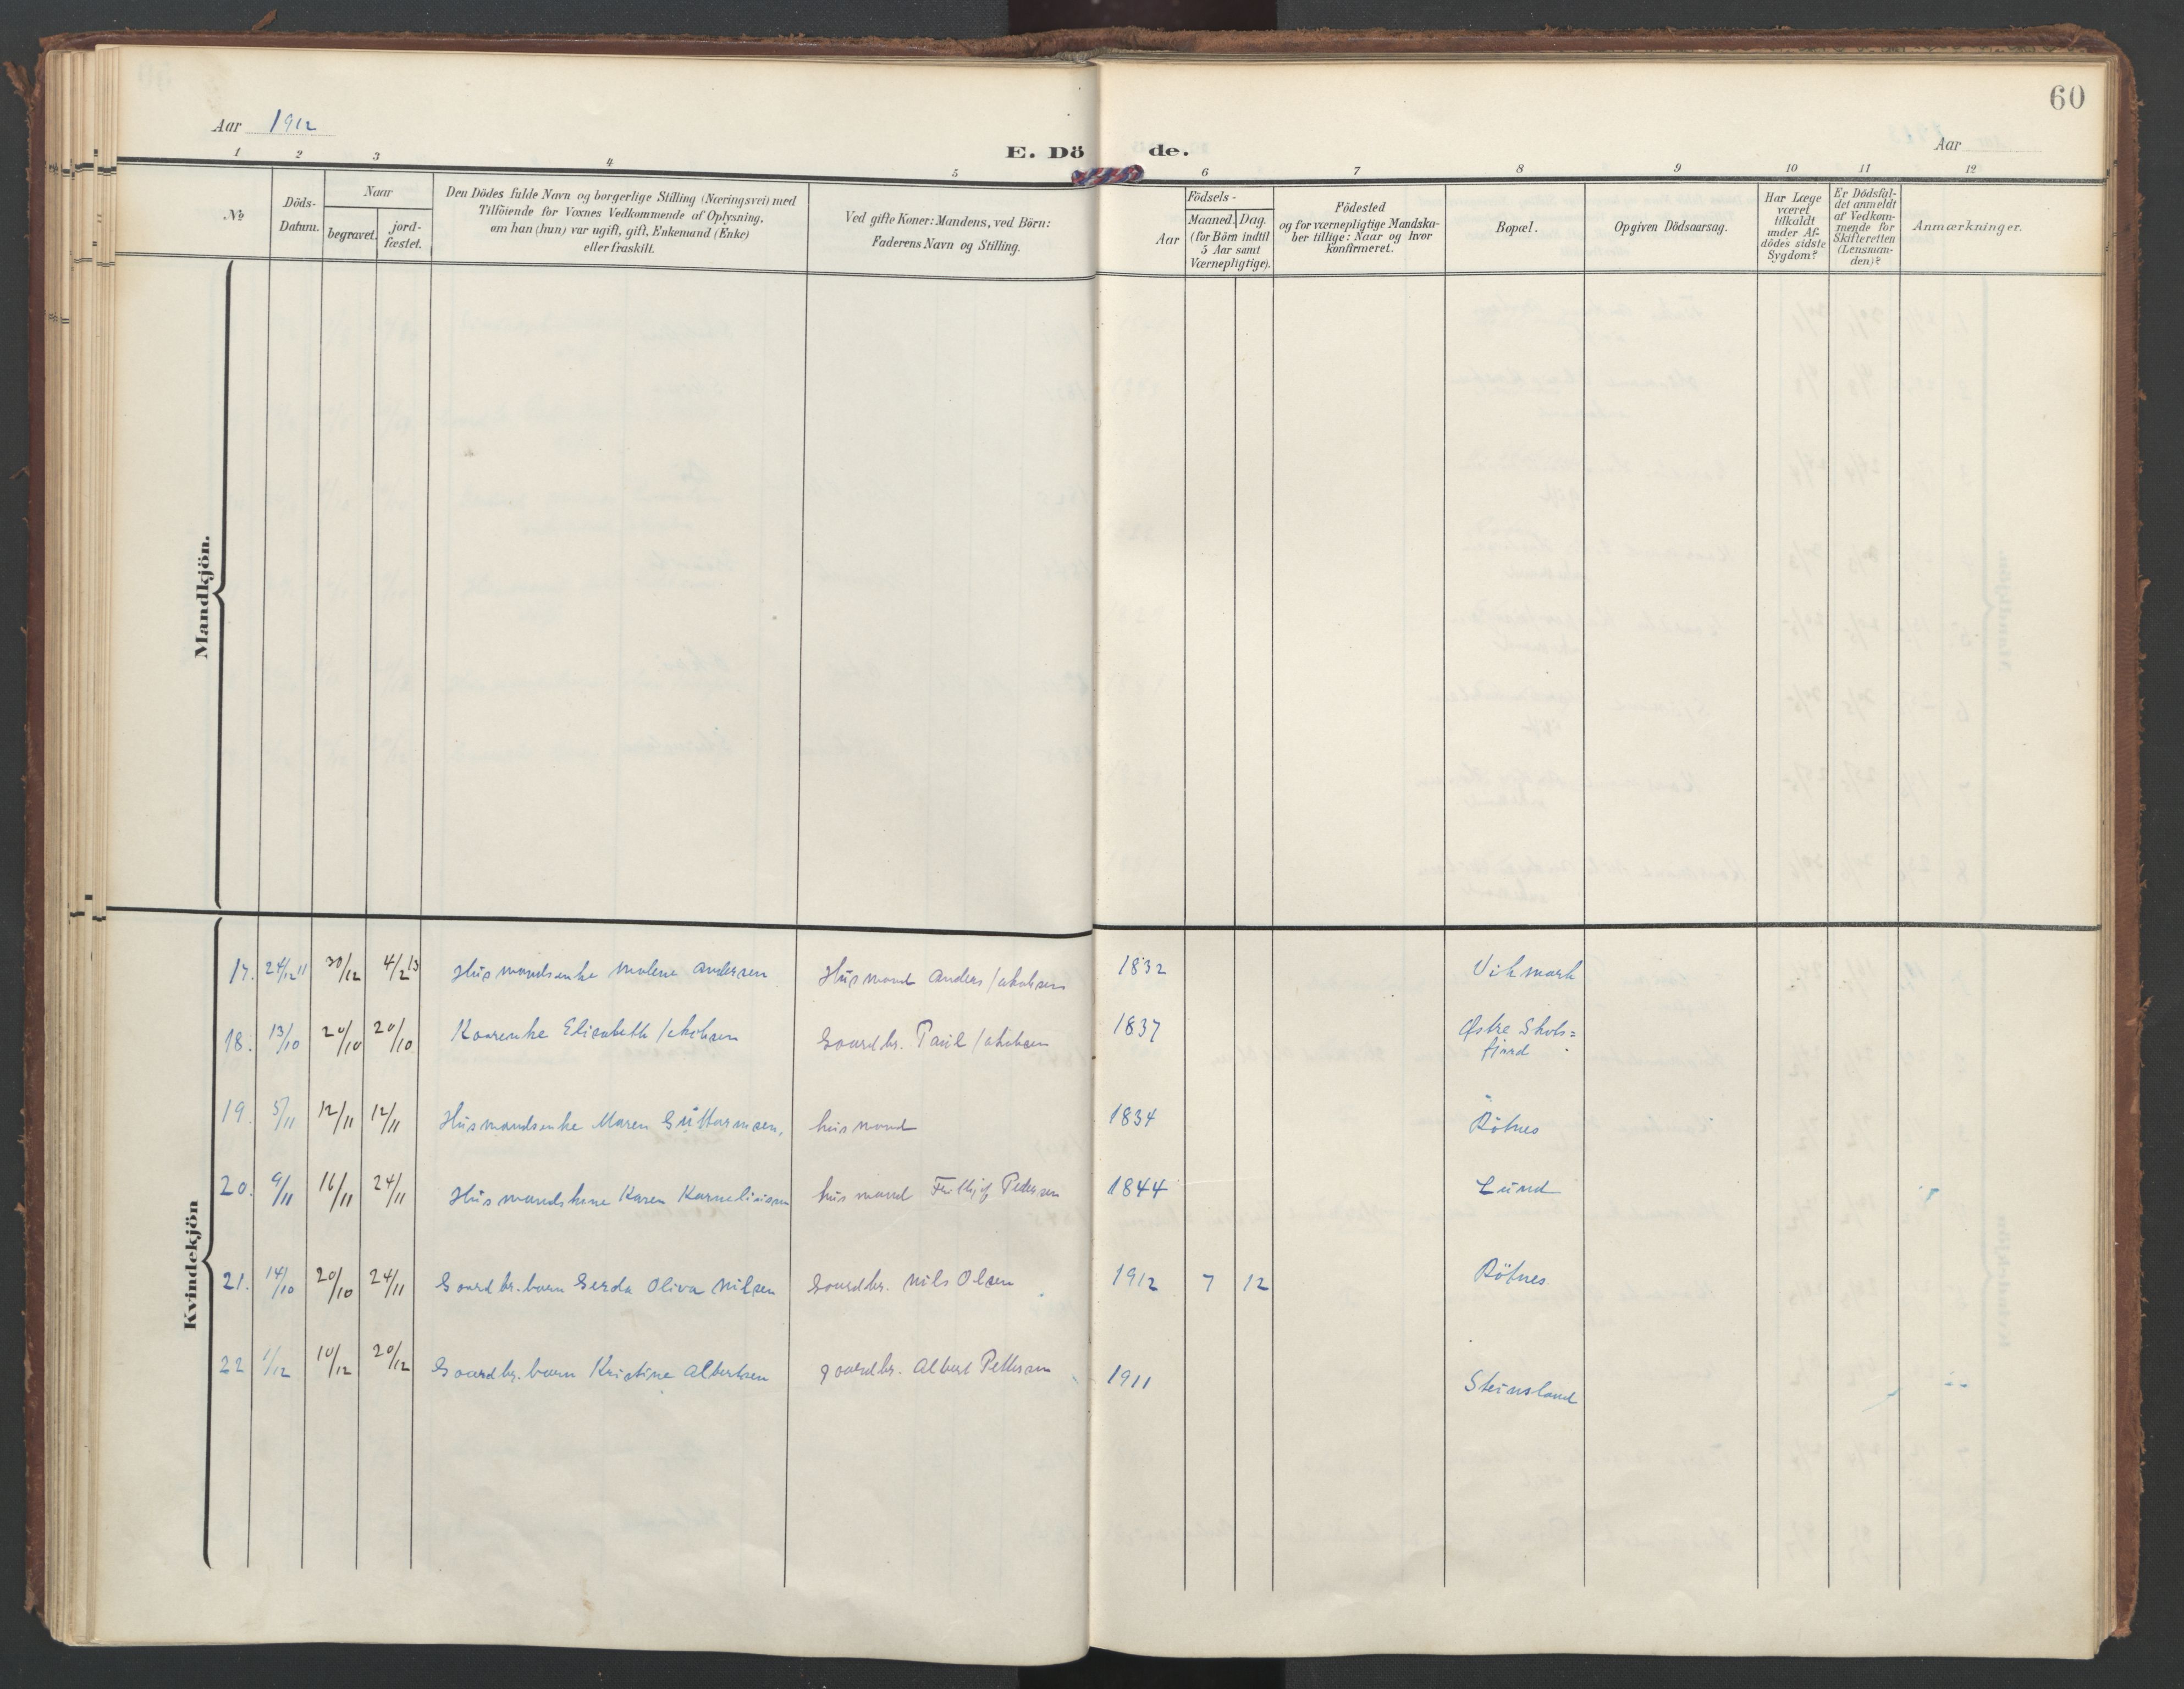 60
Aar 1912
E. Dö de.
Aar
1 2 3 4 5 6 7 8 9 10 11 12
№
Döds-
Datum.
Naar
begravet.
jord-
fæstet.
Den Dödes fulde Navn og borgerlige Stilling (Næringsvei) med
Tilföiende for Voxnes Vedkommende af Oplysning,
om han (hun) var ugift, gift, Enkemand (Enke)
eller fraskilt.
Ved gifte Koner: Mandens, ved Börn:
Faderens Navn og Stilling.
Födsels-
Aar
Maaned.
Dag.
(for Börn indtil
5 Aar samt
Værnepligtige).
Födested
og for værnepligtige Mandska-
ber tillige: Naar og hvor
konfirmeret.
Bopæl.
Opgiven Dödsaarsag.
Har Læge
været
tilkaldt
under Af-
dödes sidste
Sygdom?
Er Dödsfal-
det anmeldt
af Vedkom-
mende for
Skifteretten
(Lensman-
den)?
Anmærkninger.
Mandkjön.
Kvindekjön
17. 24/12 11 30/12 4/2 13 Husmandsenke Malene Andersen Husmand Anders Jakobsen 1832 Vikmark
18. 13/10 20/10 20/10 Kaarenke Elisabeth Jakobsen Gaardbr. Paul Jakobsen 1837 Østre Skots=
fjord
19. 5/11 12/11 12/11 Husmandsenke Maren Guttormsen, husmand 1834 Rötnes
20. 9/11 16/11 24/11 Husmandskone Karen Korneliusen husmand Frithjof Pedersen 1844 Lund
21. 14/10 20/10 24/11 Gaardbr. barn Gerda Oliva Nilsen Gaardbr. Nils Olsen 1912 7 12 Rötnes.
22 1/12 10/12 20/12 Gaardbr. barn Kristine Albertsen gaardbr. Albert Pettersen 1911 Steinsland